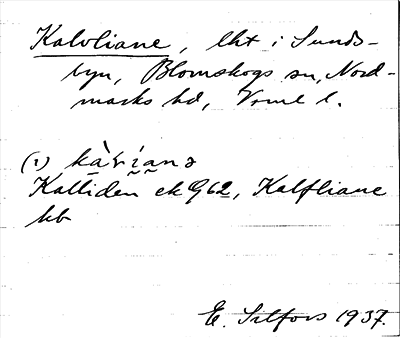 Kalvliane, lht i Sunds-
byn, Blomskogs sn, Nord-
marks hd, Vrml l.
(1) kàríanə
Kalliden ek G62, Kalfliane
kb
E. Salfors 1937.